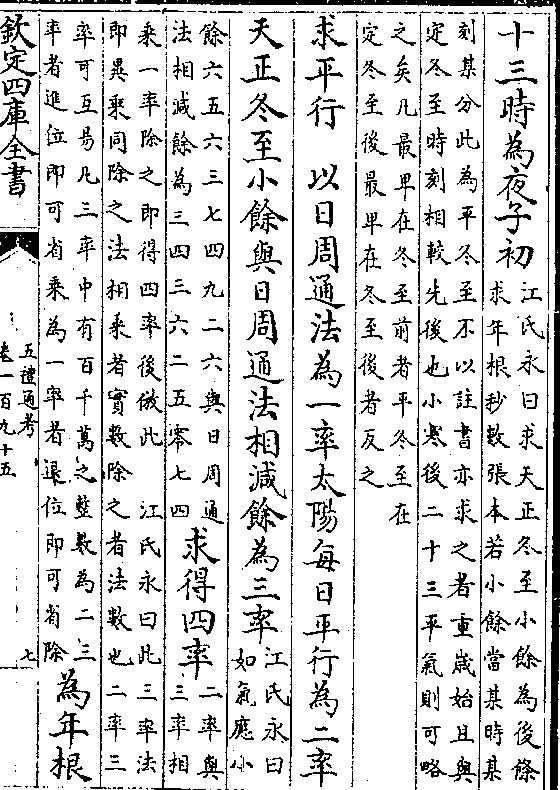 十三時為夜子初
江氏永曰求天正冬至小餘為後條
求年根秒數張本若小餘當某時某
刻某分此為平冬至不以註書亦求之者重歲始且與
定冬至時刻相較先後也小寒後二十三平氣則可略
之矣凡最卑在冬至前者平冬至在
定冬至後最卑在冬至後者反之
求平行　以日周通法為一率太陽每日平行為二率
天正冬至小餘與日周通法相減餘為三率
江氏永曰
如氣應小
餘六五六三七四九二六與日周通
法相減餘為三四三六二五零七四
求得四率
二率與
三率相
乘一率除之即得四率後倣此　江氏永曰此三率法
即異乘同除之法相乘者實數除之者法數也二率三
率可互易凡三率中有百千萬之整數為二三
率者進位即可省乘為一率者退位即可省除
為年根
欽定四庫全書
五禮通考
卷一百九十五
七